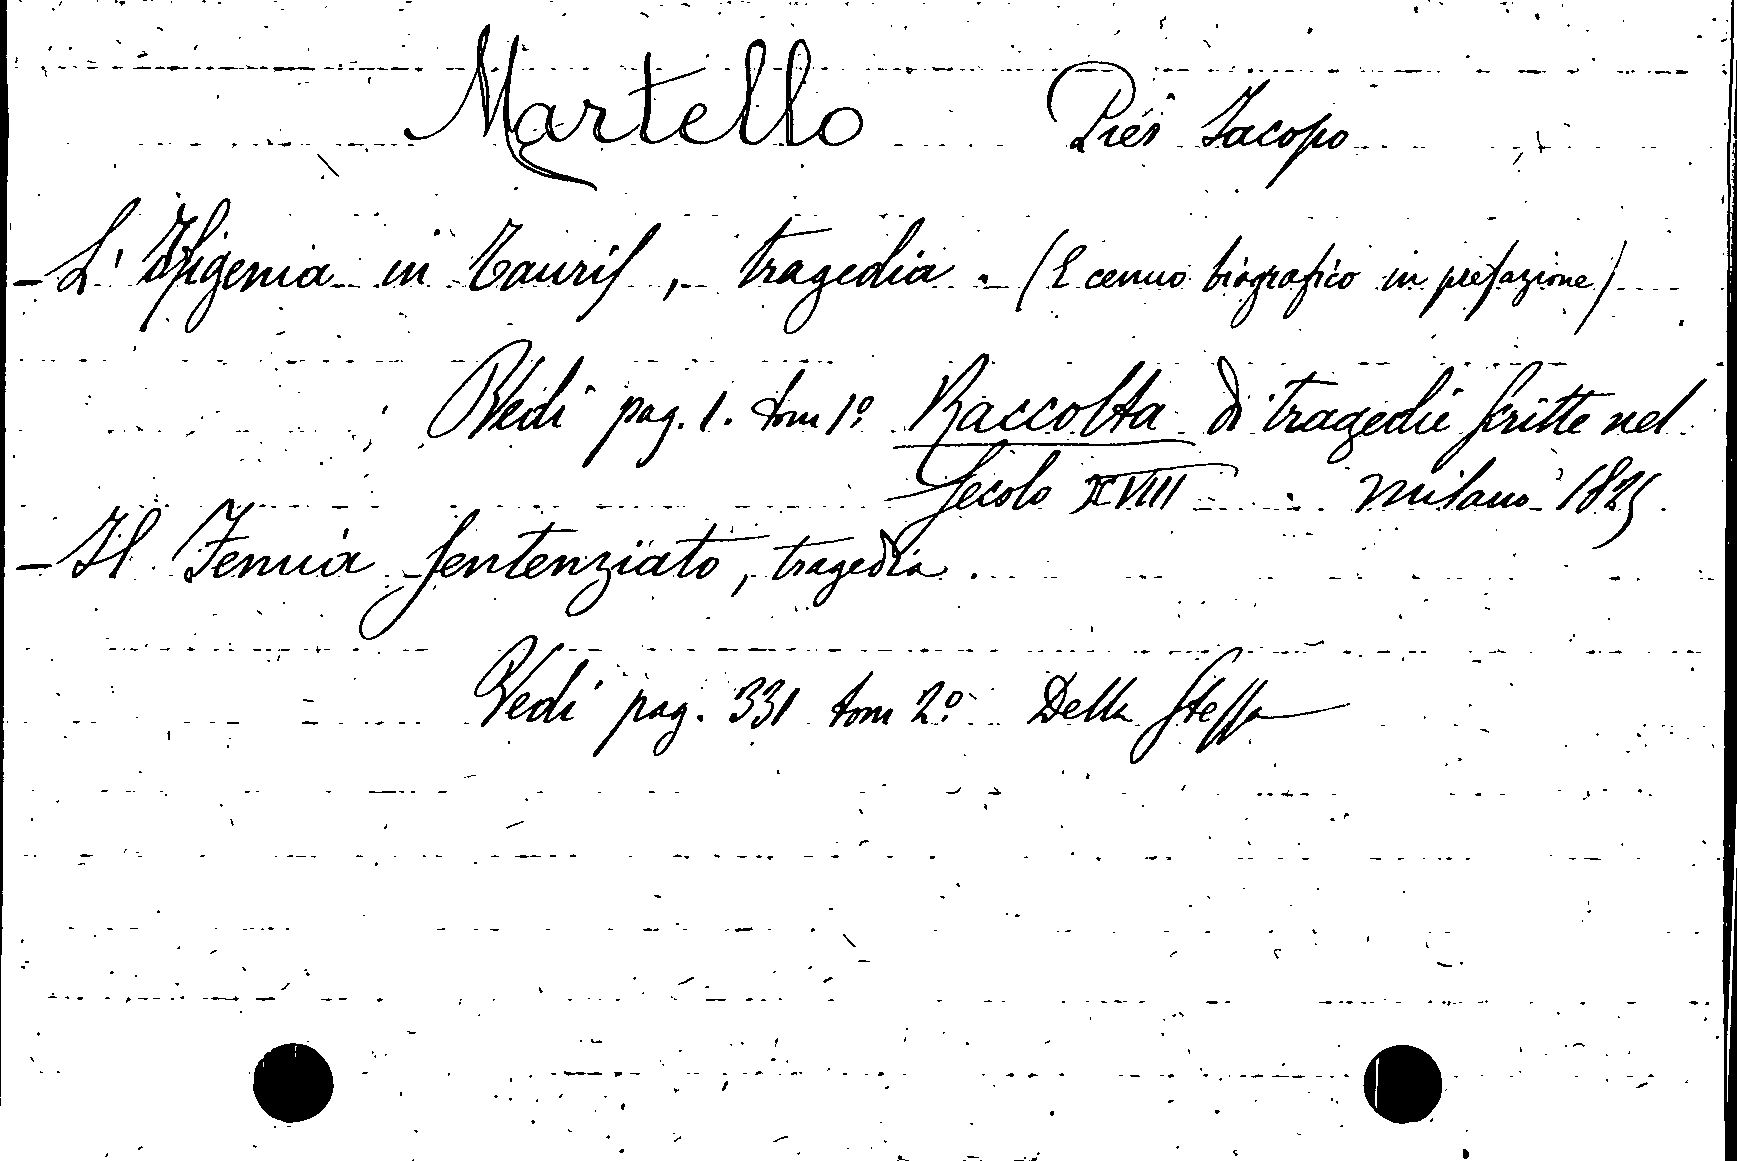 Martello Pier Jacopo
- L'Ifigenia in Tauris, tragedia. (E cenno biografico in prefazione)
Vedi pag. 1. tom 1º Raccolta di tragedie scritte nel
Secolo XVIII. Milano 1825
- Il sentenziato, tragedia.
Vedi pag. 331 tom 2º Della stessa